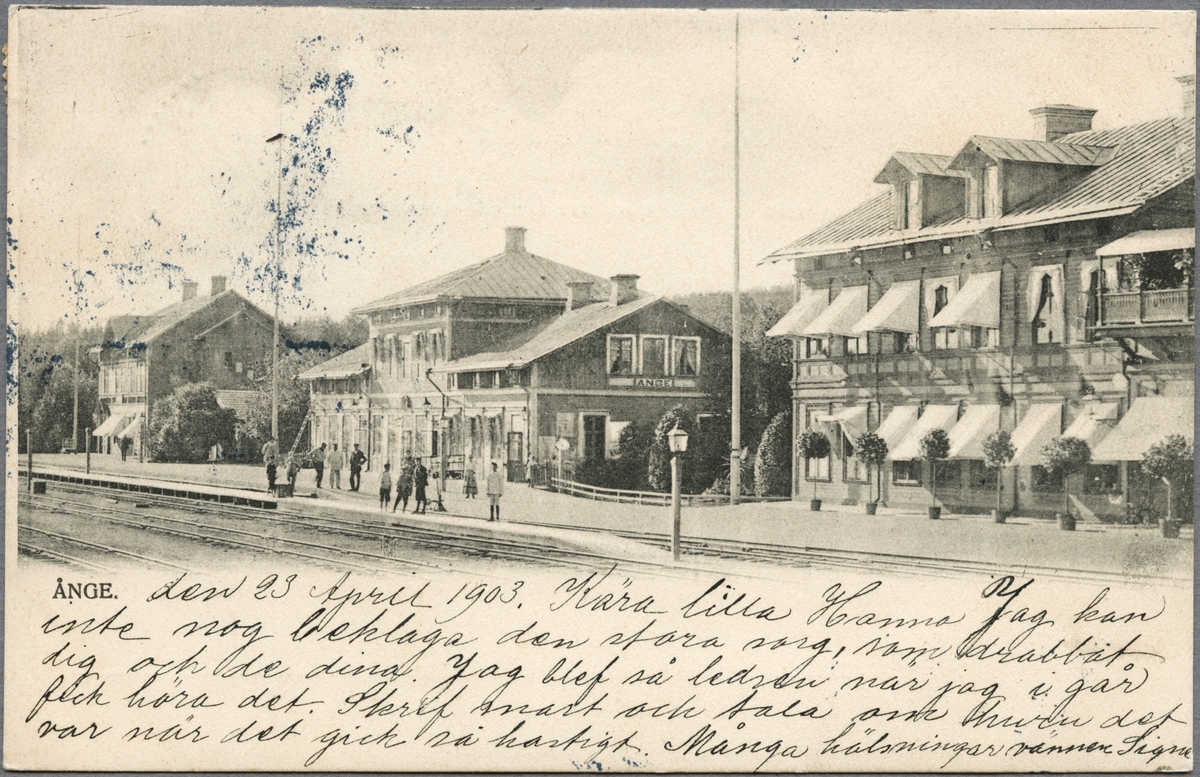 ÅNGE
ÅNGE. den 23 April 1903. Kära lilla Hanna Jag kan
inte nog beklaga den stora sorg, som drabbat
dig och de dina. Jag blef så ledsen när jag i går
fick höra det. Skrif snart och tala om huru det
var när det gick så hastigt. Många hälsningar vännen Signe